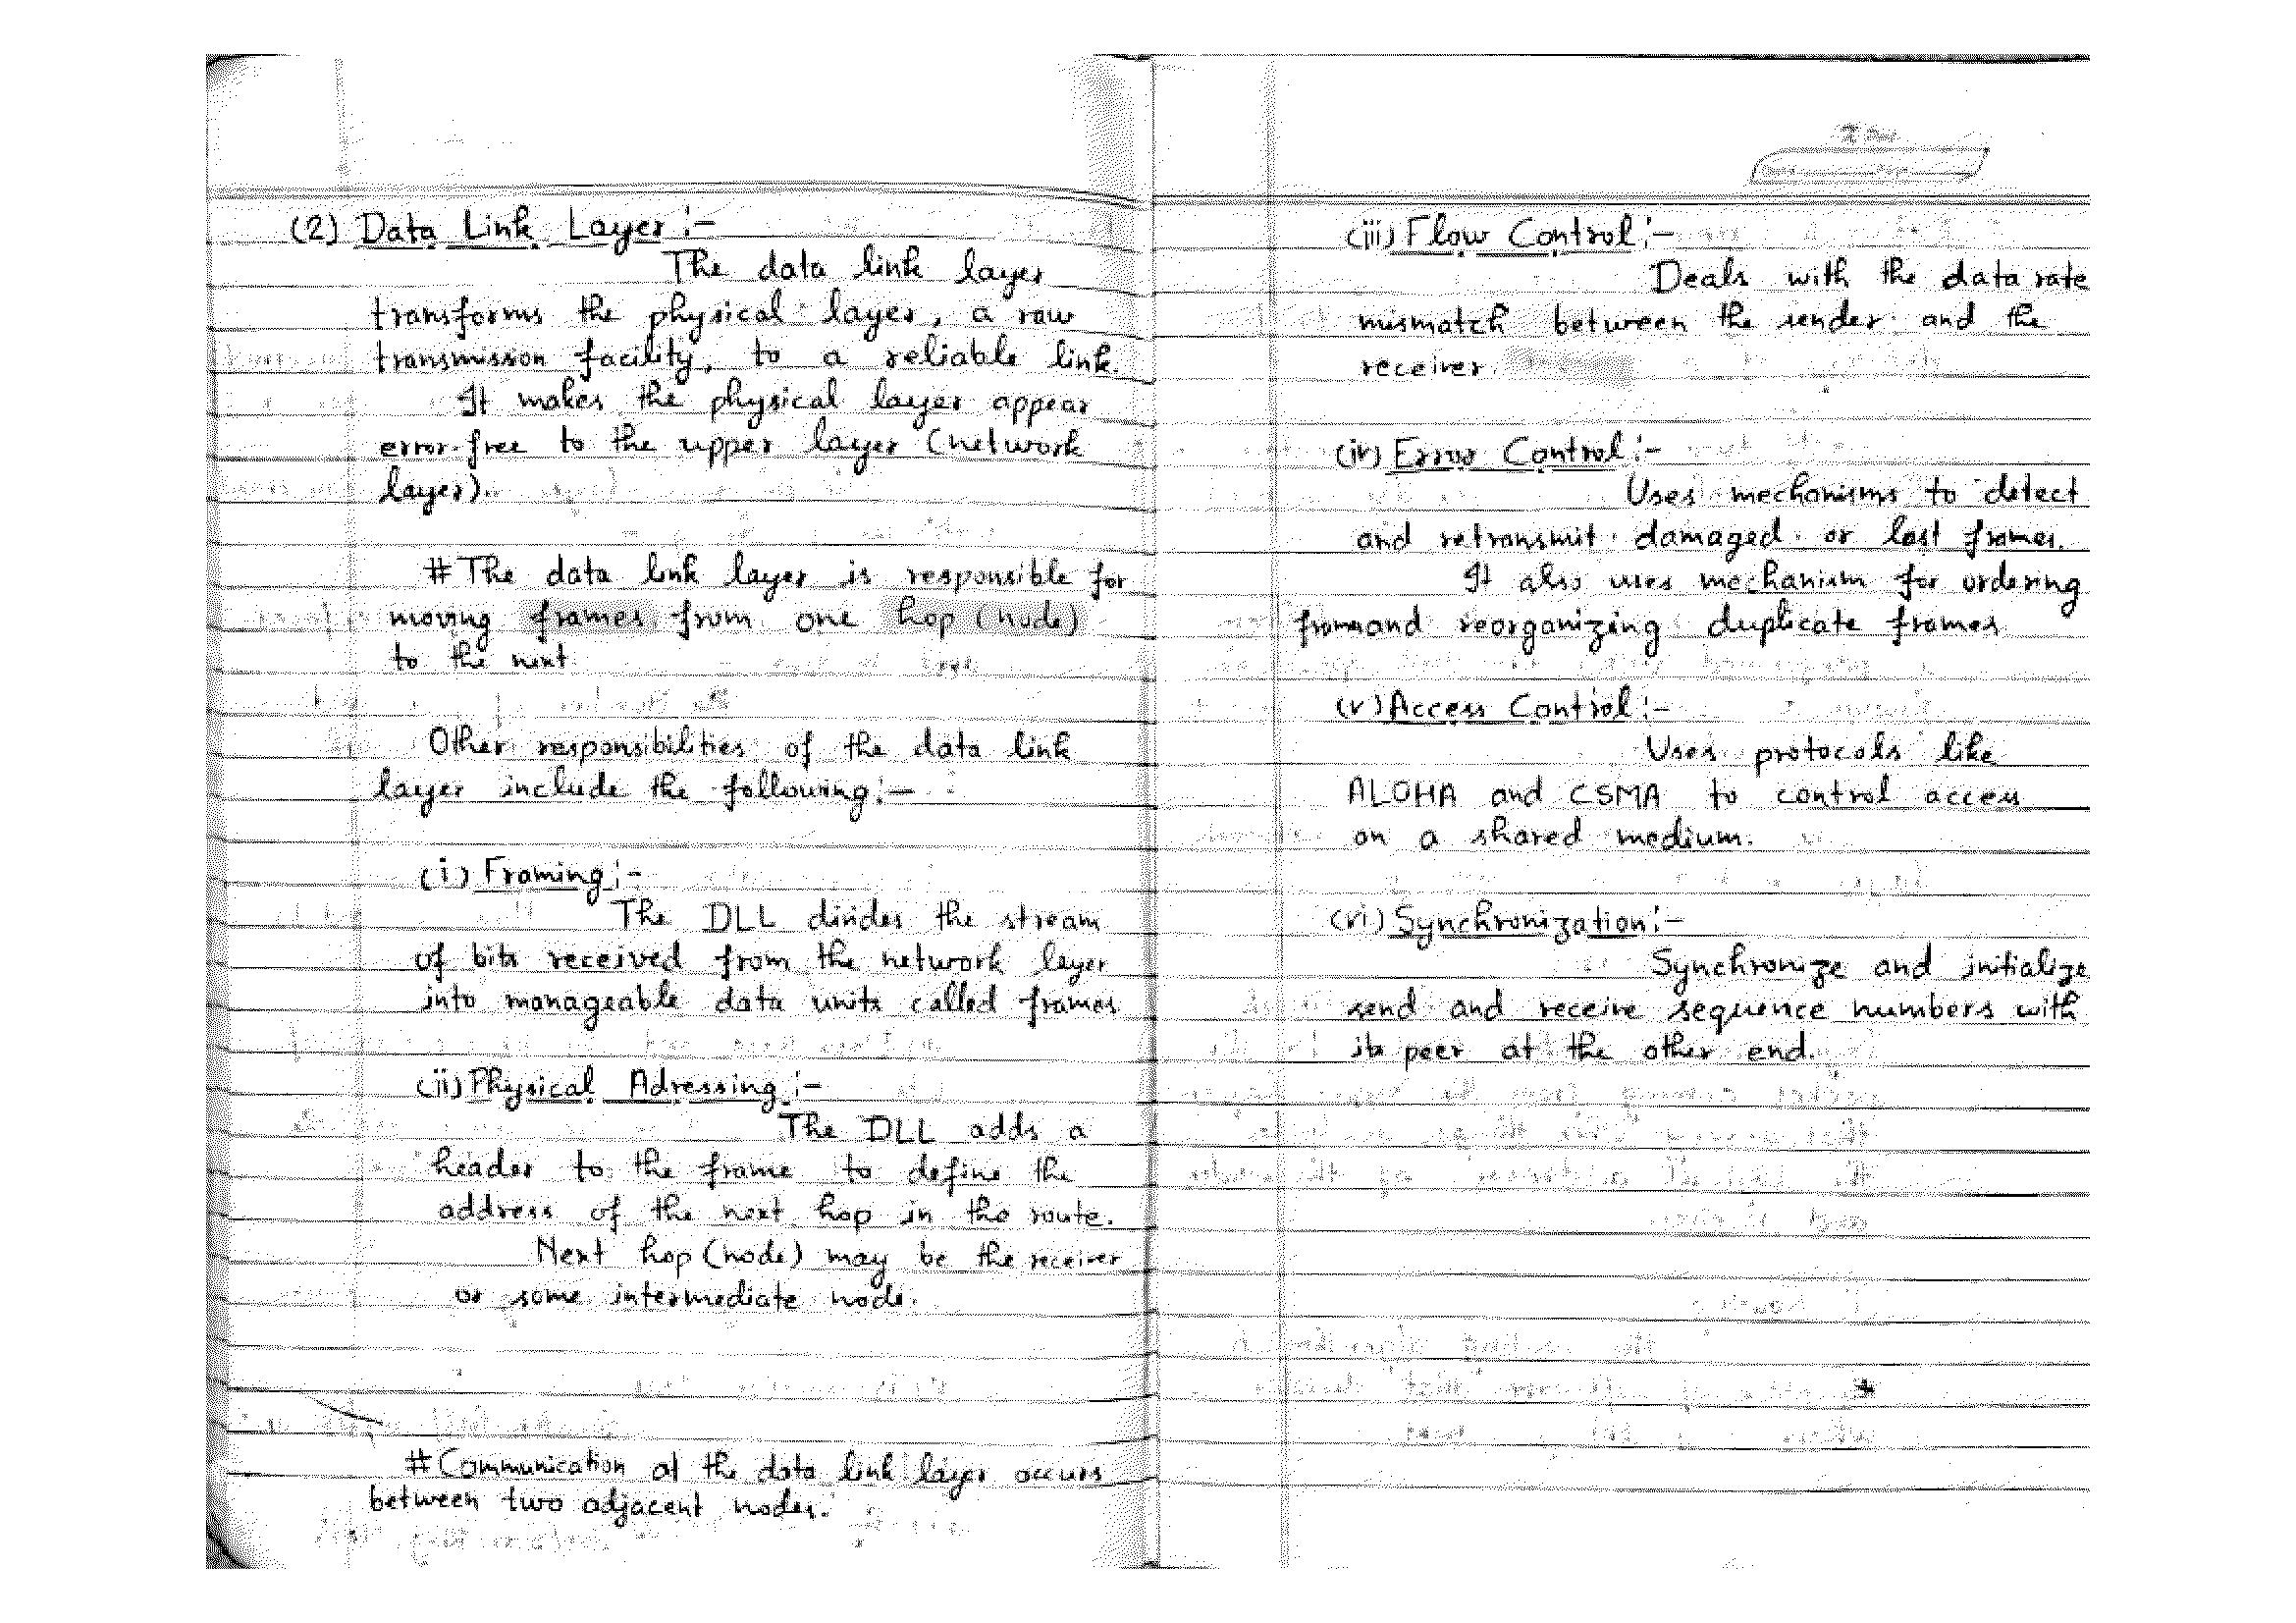 (2) Data Link Layer :-
The data link layer
transforms the physical layer, a raw
transmission facility, to a reliable link.
It makes the physical layer appear
error-free to the upper layer (network
layer).
# The data link layer is responsible for
moving frames from one hop (node)
to the next.
Other responsibilities of the data link
layer include the following :-
(i) Framing :-
The DLL divides the stream
of bits received from the network layer
into manageable data units called frames.
(ii) Physical Adressing :-
The DLL adds a
header to the frame to define the
address of the next hop in the route.
Next hop (node) may be the receiver
or some intermediate node.
# Communication at the data link layer occurs
between two adjacent nodes.
(iii) Flow Control :-
Deals with the data rate
mismatch between the sender and the
receiver.
(iv) Error Control :-
Uses mechanisms to detect
and retransmit damaged or lost frames.
It also uses mechanism for ordering
frame and reorganizing duplicate frames
(v) Access Control :-
Uses protocols like
ALOHA and CSMA to control access
on a shared medium.
(vi) Synchronization :-
Synchronize and initialize
send and receive sequence numbers with
its peer at the other end.